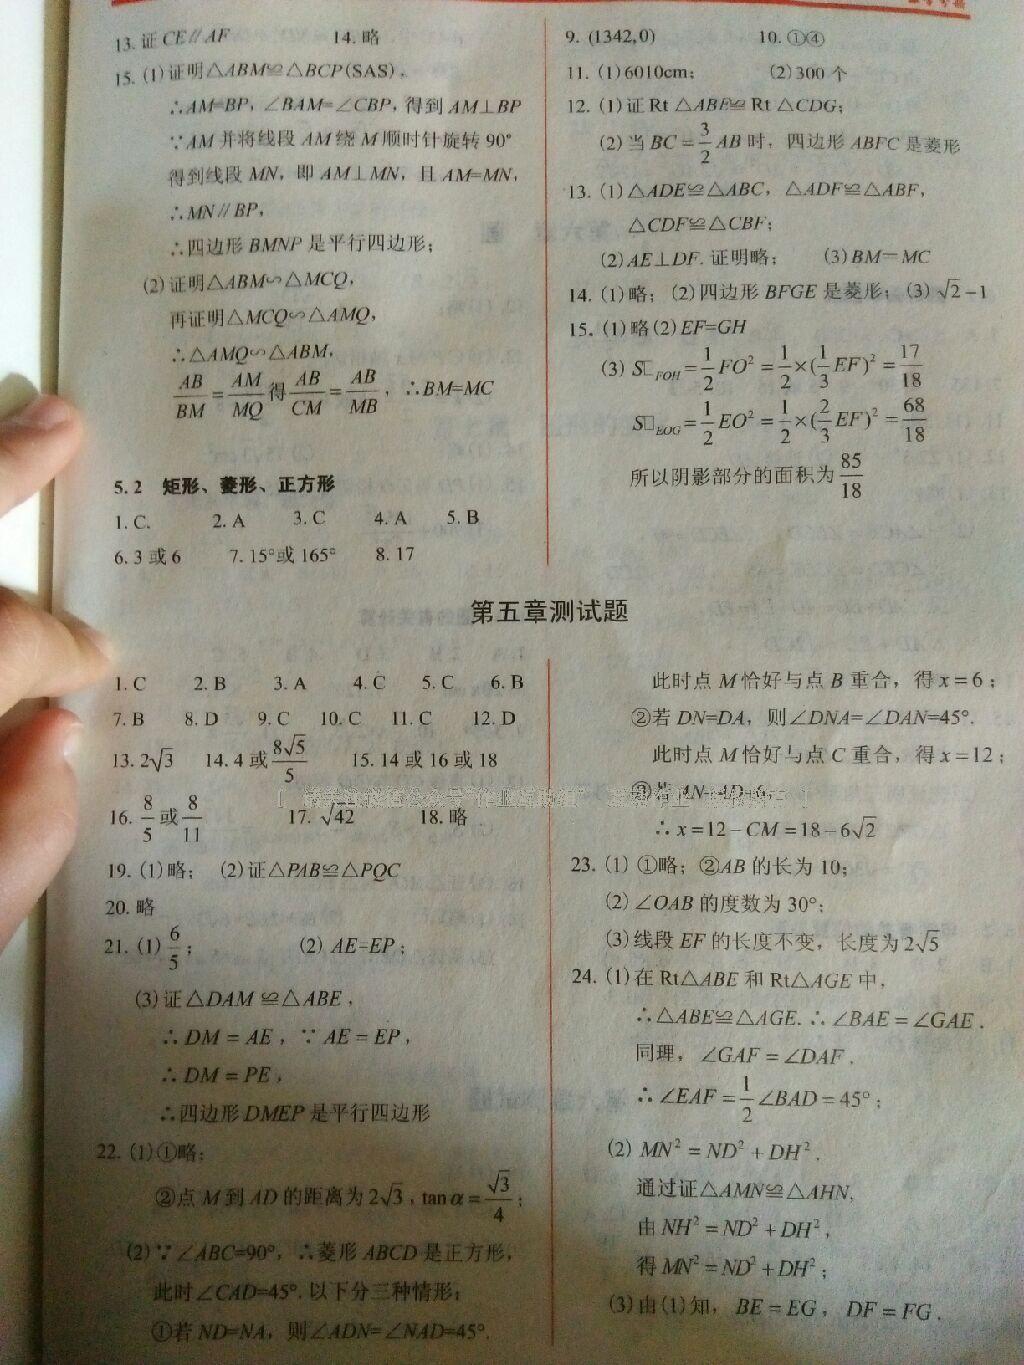 13. 证 CE∥AF 14. 略
15. (1) 证明△ABM≌△BCP(SAS),
∴AM=BP, ∠BAM=∠CBP, 得到 AM⊥BP
∵AM 并将线段 AM 绕 M 顺时针旋转 90°
得到线段 MN, 即 AM⊥MN, 且 AM=MN,
∴MN∥BP,
∴四边形 BMNP 是平行四边形;
(2) 证明△ABM∽△MCQ,
再证明△MCQ∽△AMQ,
∴△AMQ∽△ABM,
AB/BM = AM/MQ 得 AB/CM = AB/MB, ∴BM=MC
5. 2 矩形、菱形、正方形
1. C. 2. A 3. C 4. A 5. B
6. 3 或 6 7. 15°或 165° 8. 17
9. (1342,0) 10. ①④
11. (1) 6010cm; (2) 300 个
12. (1) 证 Rt △ABE≌ Rt △CDG;
(2) 当 BC = 3/2 AB 时, 四边形 ABFC 是菱形
13. (1) △ADE≌△ABC, △ADF≌△ABF,
△CDF≌△CBF;
(2) AE⊥DF. 证明略; (3) BM=MC
14. (1) 略; (2) 四边形 BFGE 是菱形; (3) √2−1
15. (1) 略(2) EF=GH
(3) S□FOH = 1/2 FO² = 1/2 × (1/3 EF)² = 17/18
S□EOG = 1/2 EO² = 1/2 × (2/3 EF)² = 68/18
所以阴影部分的面积为 85/18
第五章测试题
1. C 2. B 3. A 4. C 5. C 6. B
7. B 8. D 9. C 10. C 11. C 12. D
13. 2√3 14. 4 或 8√5/5 15. 14 或 16 或 18
16. 8/5 或 8/11 17. √42 18. 略
19. (1) 略; (2) 证△PAB≌△PQC
20. 略
21. (1) 6/5; (2) AE=EP;
(3) 证△DAM ≌△ABE,
∴ DM = AE, ∵ AE = EP,
∴ DM = PE,
∴四边形 DMEP 是平行四边形
22. (1) ①略;
②点 M 到 AD 的距离为 2√3, tanα = √3/4;
(2) ∵∠ABC=90°, ∴菱形 ABCD 是正方形,
此时∠CAD=45°. 以下分三种情形;
①若 ND=NA, 则∠ADN=∠NAD=45°.
此时点 M 恰好与点 B 重合, 得 x = 6;
②若 DN=DA, 则∠DNA=∠DAN=45°.
此时点 M 恰好与点 C 重合, 得 x = 12;
③若 AN=AD=6,
∴ x = 12 − CM = 18 − 6√2
23. (1) ①略; ②AB 的长为 10;
(2) ∠OAB 的度数为 30°;
(3) 线段 EF 的长度不变, 长度为 2√5
24. (1) 在 Rt△ABE 和 Rt△AGE 中,
∴△ABE≌△AGE. ∴ ∠BAE = ∠GAE.
同理, ∠GAF = ∠DAF.
∴ ∠EAF = 1/2 ∠BAD = 45°;
(2) MN² = ND² + DH².
通过证△AMN≌△AHN,
由 NH² = ND² + DH²,
得 MN² = ND² + DH²;
(3) 由(1)知, BE = EG, DF = FG.